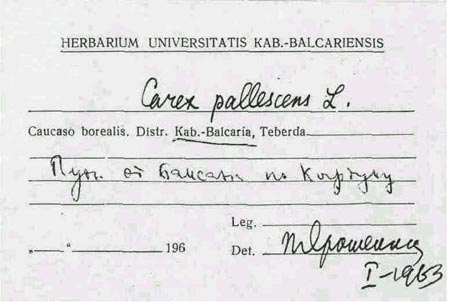 HERBARIUM UNIVERSITATIS KAB.-BALCARIENSIS
Carex pallescens L.
Caucaso borealis. Distr. Kab.-Balcaria, Teberda
от Баксана по
Leg.
„ “ 196 Det.
I-1963